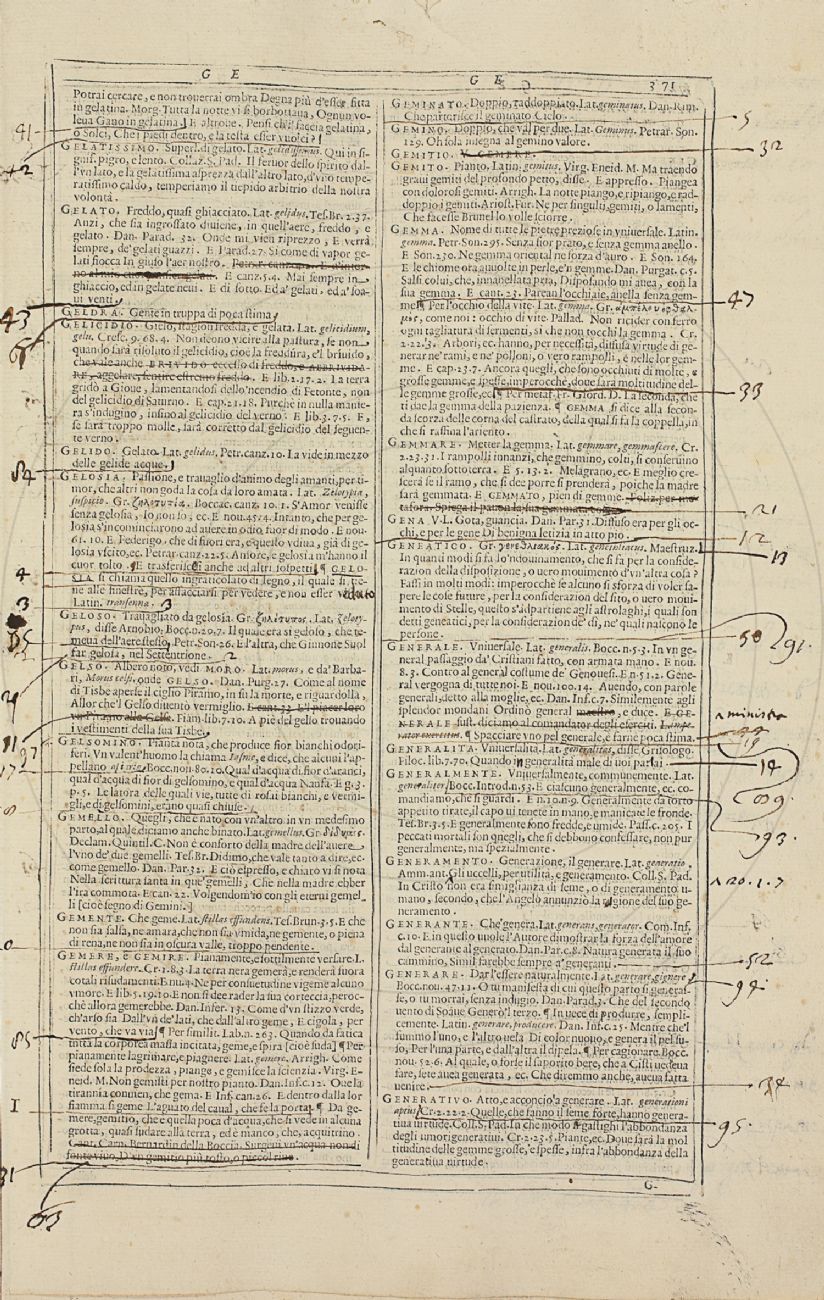 G E
G E
371
Potrai cercare, e non trouerrai ombra Degna più d'esser fitta
in gelatina. Morg. Tutta la notte vi si borbottaua, Ognun vo-
leua Gano in gelatina. E altroue. Pensi ch'i' faccia gelatina,
o solci, Che i piedi dentro, e la testa esser vuoici?
GELATISSIMO. Superl. di gelato. Lat. Qui in si-
gnif. pigro, e lento. Collaz. S. Pad. Il feruor dello spirito dal-
l'vn lato, e la gelatissima asprezza dall'altro lato, d'vno tempe-
ratissimo caldo, temperiamo il tiepido arbitrio della nostra
volontà.
GELATO. Freddo, quasi ghiacciato. Lat. gelidus. Tes. Br. 2.37.
Anzi, che sia ingrossato diuiene, in quell'aere, freddo, e
gelato. Dan. Parad. 32. Onde mi vien riprezzo, E verrà
sempre, de' gelati guazzi. E Parad. 27. Sì come di vapor ge-
lati fiocca In giuso l'aer nostro.
E canz. 5.4. Mai sempre in
ghiaccio, ed in gelate neui. E di sotto. Ed a' gelati, ed a' soa-
ui venti.
GELDRA. Gente in truppa di poca stima,
GELICIDIO. Gielo, stagion fredda, e gelata. Lat. gelicidium,
gelu. Cresc. 9.68.4. Non deono vscire alla pastura, se non
quando sarà risoluto il gelicidio, cioè la freddura, e'l briuido,
che vale anche BRIVIDO eccesso di freddo, e ABBRIVIDA-
RE, aggelare, sentire estremo freddo. E lib. 1.17.2. La terra
gridò a Gioue, lamentandosi dello'ncendio di Fetonte, non
del gelicidio di Saturno. E cap. 21.18. Purchè in nulla manie-
ra s'indugino, insino al gelicidio del verno. E lib. 3.7.5. E,
se sarà troppo molle, sarà corretto dal gelicidio del seguen-
te verno.
GELIDO. Gelato. Lat. gelidus. Petr. canz. 10. La vide in mezzo
delle gelide acque.
GELOSIA. Passione, e trauaglio d'animo degli amanti, per ti-
mor, che altri non goda la cosa da loro amata. Lat. Zelotypia,
suspicio. Gr. ζηλοτυπία. Boccac. canz. 10.1. S'Amor venisse
senza gelosia, Io non so, ec. E nou. 45.14. Intanto, che per ge-
losia s'incominciarono ad auere in odio fuor di modo. E nou.
61.10. E Federigo, che di fuori era, e questo vdiua, già di ge-
losia vscito, ec. Petrar. canz. 22.5. Amore, e gelosia m'hanno il
cuor tolto. ¶ E trasferiscesi anche ad altri sospetti. ¶ GELO-
SIA si chiama quello ingraticolato di legno, il quale si tie-
ne alle finestre, per affacciarsi per vedere, e non esser veduto
Latin. transenna.
GELOSO. Trauagliato da gelosia. Gr. ζηλότυπος. Lat. Zeloty-
pus, disse Arnobio. Bocc. n. 20.7. Il quale era sì geloso, che te-
meua dell'aere stesso. Petr. Son. 26. E l'altra, che Giunone Suol
far gelosa, nel Settentrione.
GELSO. Albero noto, vedi MORO. Lat. morus, e da' Barba-
ri, Morus celsi, onde GELSO. Dan. Purg. 27. Come al nome
di Tisbe aperse il ciglio Piramo, in su la morte, e riguardolla,
Allor che'l Gelso diuentò vermiglio. E cant. 33. E'l piacer loro
vn Piramo alla Gelsa. Fiam. lib. 7.10. A piè del gelso trouando
i vestimenti della sua Tisbe,
GELSOMINO. Pianta nota, che produce fior bianchi odori-
feri. Vn valent'huomo la chiama Iasme, e dice, che alcuni l'ap-
pellano Bocc. nou. 80.10. Qual d'acqua di fior d'aranci,
qual d'acqua di fior di gelsomino, e qual d'acqua Nanfa. E g. 3.
p. 5. Le latora delle quali vie, tutte di rosai bianchi, e vermi-
gli, e di gelsomini, erano quasi chiuse.
GEMELLO. Quegli, che è nato con vn'altro in vn medesimo
parto, al quale diciamo anche binato. Lat. gemellus. Gr. δίδυμος.
Declam. Quintil. C. Non è conforto della madre dell'auere
l'vno de' due gemelli. Tes. Br. Didimo, che vale tanto a dire, ec.
come gemello. Dan. Par. 32. E ciò espresso, e chiaro vi si nota
Nella scrittura santa in que' gemelli, Che nella madre ebber
l'ira commota. E can. 22. Volgendom'io con gli eterni gemel-
li [cioè segno di Gemini.]
GEMENTE. Che geme. Lat. stillas effundens. Tes. Brun. 3.5. E che
non sia salsa, ne amara, che non sia vmida, ne gemente, o piena
di rena, ne non sia in oscura valle, troppo pendente.
GEMERE, e GEMIRE. Pianamente, e sottilmente versare. L.
stillas effundere. Cr. 1.8.3. La terra nera gemerà, e renderà fuora
cotali risudamenti. E nu. 4. Ne per consuetudine vi geme alcuno
vmore. E lib. 5.19.10. E non si dee rader la sua corteccia, peroc-
chè allora gemerebbe. Dan. Infer. 13. Come d'vn stizzo verde,
ch'arso sia Dall'vn de' lati, che dall'altro geme, E cigola, per
vento, che va via. ¶ Per similit. Lab. n. 263. Quando da fatica
tutta la corporea massa incitata, geme, e spira [cioè suda] ¶ Per
pianamente lagrimare, e piagnere. Lat. gemere. Arrigh. Come
siede sola la prodezza, piange, e gemisce la scienzia. Virg. E-
neid. M. Non gemisti per nostro pianto. Dan. Inf. c. 12. Oue la
tirannia conuien, che gema. E Inf. can. 26. E dentro dalla lor
fiamma si geme L'aguato del caual, che fe la porta. ¶ Da ge-
mere, gemitio, che è quella poca d'acqua, che si vede in alcuna
grotta, quasi sudare alla terra, ed è manco, che, acquitrino.
Cant. Carn. Bernardin della Boccia. Surgeui vn'acqua non di
fonte viuo, D'vn gemitio più tosto, o piccol riuo.
GEMINATO. Doppio, raddoppiato. Lat. geminatus. Dan. Rim.
Che partorisce il geminato Cielo.
GEMINO. Doppio, che val per due. Lat. Geminus. Petrar. Son.
129. Oh sola insegna al gemino valore.
GEMITIO. V. GEMERE.
GEMITO. Pianto. Latin. gemitus. Virg. Eneid. M. Ma traendo
graui gemiti del profondo petto, disse. E appresso. Piangea
con dolorosi gemiti. Arrigh. La notte piango, e ripiango, e rad-
doppio i gemiti. Ariost. Fur. Ne per singulti, gemiti, o lamenti,
Che facesse Brunel lo volle sciorre.
GEMMA. Nome di tutte le pietre preziose in vniuersale. Latin.
gemma. Petr. Son. 295. Senza fior prato, e senza gemma anello.
E Son. 230. Ne gemma oriental ne forza d'auro. E Son. 164.
E le chiome ora auuolte in perle, e'n gemme. Dan. Purgat. c. 5.
Salsi colui, che, innanellata pria, Disposando m'auea, con la
sua gemma. E cant. 23. Parean l'occhiaie, anella senza gem-
me. ¶ Per l'occhio della vite. Lat. gemma. Gr.
come noi: occhio di vite. Pallad. Non ricider con ferro
ogni tagliatura di sermenti, sì che non tocchi la gemma. Cr.
2.22.3. Arbori, ec. hanno, per necessità, diffusa virtude di ge-
nerar ne' rami, e ne' polloni, o vero rampolli, e nelle lor gem-
me. E cap. 23.7. Ancora quegli, che sono occhiuti di molte, e
grosse gemme, e spesse, imperocchè, doue sarà moltitudine del-
le gemme grosse, ec. ¶ Per metaf. Fr. Giord. D. La seconda, che
ti dae la gemma della pazienza. ¶ GEMMA si dice alla secon-
da scorza delle corna del castrato, della qual si fa la coppella, in
che si raffina l'ariento.
GEMMARE. Metter la gemma. Lat. gemmare, gemmascere. Cr.
2.23.31. I rampolli innanzi, che gemmino, colti, si conseruino
alquanto sotto terra. E 5.13.2. Melagrano, ec. E meglio cre-
scerà se il ramo, che si dee porre si prenderà, poiche la madre
sarà gemmata. E GEMMATO, pien di gemme.
GENA V.L. Gota, guancia. Dan. Par. 31. Diffuso era per gli oc-
chi, e per le gene Di benigna letizia in atto pio.
GENEATICO. Gr. γενεθλιακός. Lat. genethliacus. Maestruz.
In quanti modi si fa lo'ndouinamento, che si fa per la conside-
razion della disposizione, o uero mouimento d'vn'altra cosa?
Fassi in molti modi: imperocchè se alcuno si sforza di voler sa-
pere le cose future, per la considerazion del sito, o uero moui-
mento di Stelle, questo s'adpartiene agli astrolaghi, i quali son
detti geneatici, per la considerazion de' dì, ne' quali nascono le
persone.
GENERALE. Vniuersale. Lat. generalis. Bocc. n. 5.3. In vn ge-
neral passaggio da' Cristiani fatto, con armata mano. E nou.
8.3. Contro al general costume de' Genouesi. E n. 51.2. Gene-
ral vergogna di tutte noi. E nou. 100.14. Auendo, con parole
generali, detto alla moglie, ec. Dan. Inf. c. 7. Similemente agli
splendor mondani Ordinò general maestra, e duce. E GE-
NERALE sust. diciamo al comandator degli eserciti.
¶ Spacciare vno pel generale, è farne poca stima.
GENERALITA. Vniuersalità. Lat. generalitas, disse Grisologo.
Filoc. lib. 7.70. Quando in generalità male di uoi parlai.
GENERALMENTE. Vniuersalmente, comunemente. Lat.
generaliter. Bocc. Introd. n. 53. E ciascuno generalmente, ec. co-
mandiamo, che si guardi. E n. 10.n.9. Generalmente da torto
appetito tirate, il capo ui tenete in mano, e manicate le fronde.
Tes. Br. 3.5. E generalmente sono fredde, e umide. Pass. c. 205. I
peccati mortali son quegli, che si debbono confessare, non pur
generalmente, ma spezialmente.
GENERAMENTO. Generazione, il generare. Lat. generatio.
Amm. ant. Gli uccelli, per utilità, e generamento. Coll. S. Pad.
In Cristo non era simiglianza di seme, o di generamento u-
mano, secondo, che l'Angelo annunziò la ragione del suo ge-
neramento.
GENERANTE. Che genera. Lat. generans, generator. Com. Inf.
c. 10. E in questo uuole l'Autore dimostrar la forza dell'amore
dal generante al generato. Dan. Par. c. 8. Natura generata il suo
cammino, Simil farebbe sempre a' generanti.
GENERARE. Dar l'essere naturalmente. Lat. generare, gignere.
Bocc. nou. 47.11. O tu manifesta di cui questo parto si generas-
se, o tu morrai, senza indugio. Dan. Parad. 3. Che del secondo
uento di Soaue Generò'l terzo. ¶ In uece di produrre, sempli-
cemente. Latin. generare, producere. Dan. Inf. c. 25. Mentre che'l
fummo l'uno, e l'altro uela Di color nuouo, e genera il pel su-
so, Per l'una parte, e dall'altra il dipela. ¶ Per cagionare. Bocc.
nou. 52.6. Al quale, o forse il saporito bere, che a Cisti uedeua
fare, sete auea generata, ec. Che diremmo anche, aueua fatta
uenire.
GENERATIVO. Atto, e acconcio a generare. Lat. generationi
aptus. Cr. 2.22.2. Quelle, che fanno il seme forte, hanno genera-
tiua uirtude. Coll. S. Pad. In che modo e' gastighi l'abbondanza
degli umori generatiui. Cr. 2.23.5. Piante, ec. Doue sarà la mol
titudine delle gemme grosse, e spesse, infra l'abbondanza della
generatiua uirtude.
G-
41
42
43
84
4
3
85
1
31
63
5
32
47
33
21
12
13
50
91.
ministra
14
93.
20.1.7
52
94.
34
95.